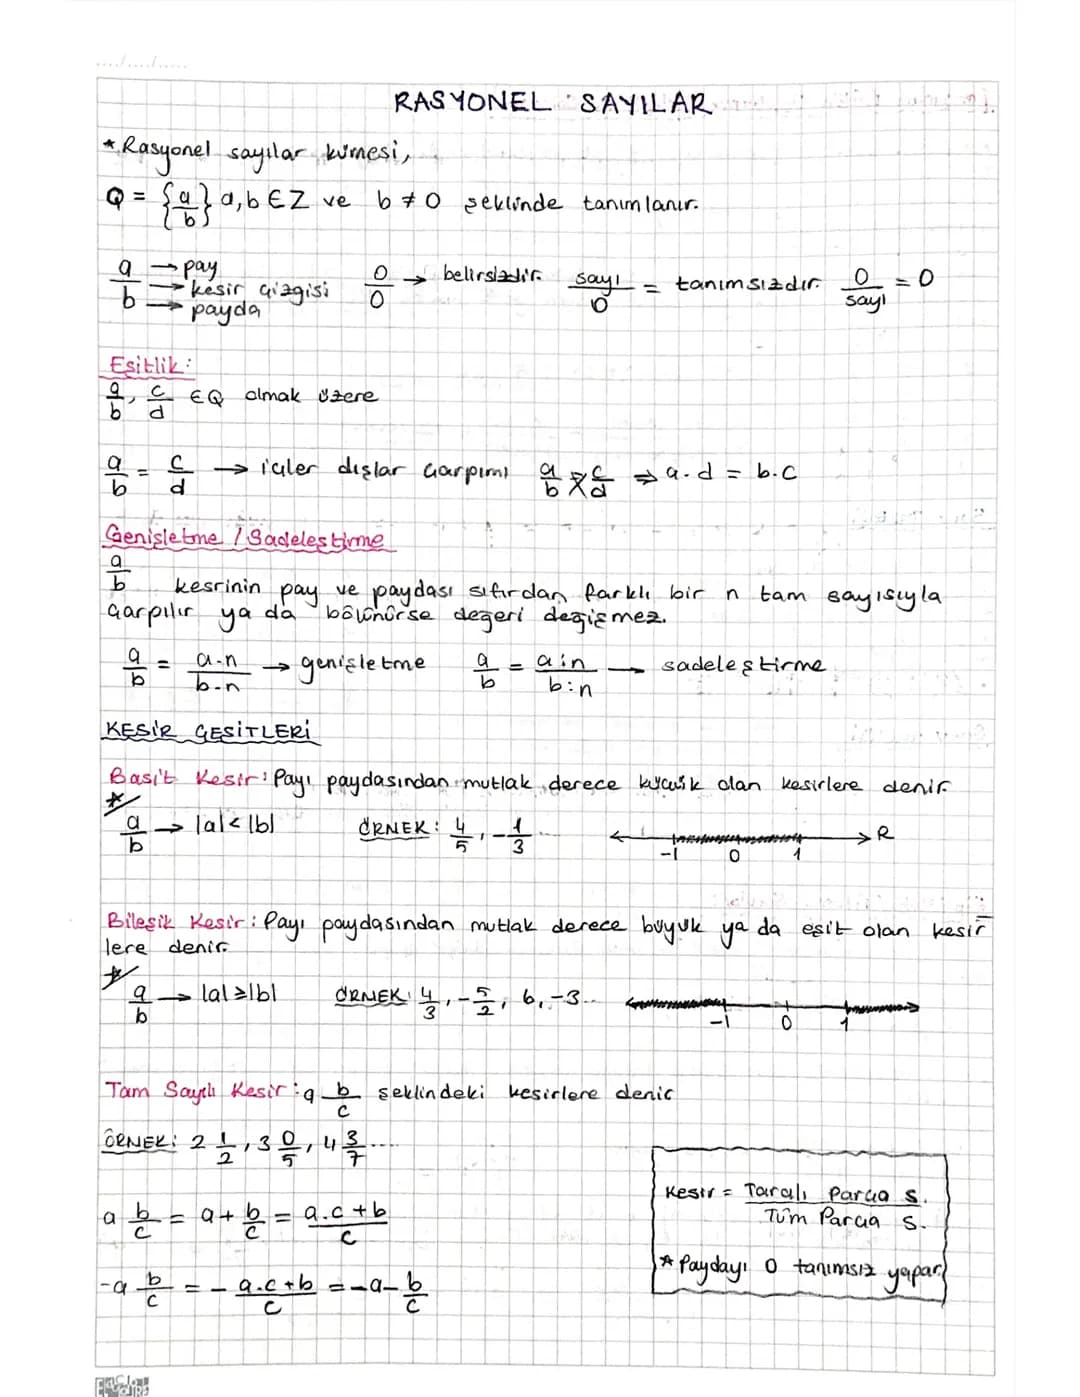 RASYONEL SAYILAR
* Rasyonel sayılar kümesi,
Q = {a/b} a,b ∈ Z ve b ≠ 0 şeklinde tanımlanır.
a/b → pay → kesir çizgisi → payda 0/0 → belirsizdir. sayı/0 = tanımsızdır. 0/sayı = 0
Eşitlik:
a/b, c/d ∈ Q olmak üzere
a/b = c/d → içler dışlar çarpımı a/b × c/d ⇒ a.d = b.c
Genişletme / Sadeleştirme
a/b kesrinin pay ve paydası sıfırdan farklı bir n tam sayısıyla
çarpılır ya da bölünürse değeri değişmez.
a/b = a.n/b.n → genişletme a/b = a:n/b:n → sadeleştirme
KESİR ÇEŞİTLERİ
Basit Kesir: Payı paydasından mutlak derece küçük olan kesirlere denir.
* a/b → |a| < |b| ÖRNEK: 4/5, -1/3 R
-1 0 1
Bileşik Kesir: Payı paydasından mutlak derece büyük ya da eşit olan kesir
lere denir.
* a/b → |a| ≥ |b| ÖRNEK: 4/3, -5/2, 6, -3...
-1 0 1
Tam Sayılı Kesir: a b/c şeklindeki kesirlere denir
ÖRNEK: 2 1/2, 3 0/5, 4 3/7 ....
a b/c = a + b/c = a.c+b/c
-a b/c = - a.c+b/c = -a - b/c
Kesir = Taralı Parça s. / Tüm Parça s.
* Paydayı 0 tanımsız yapar